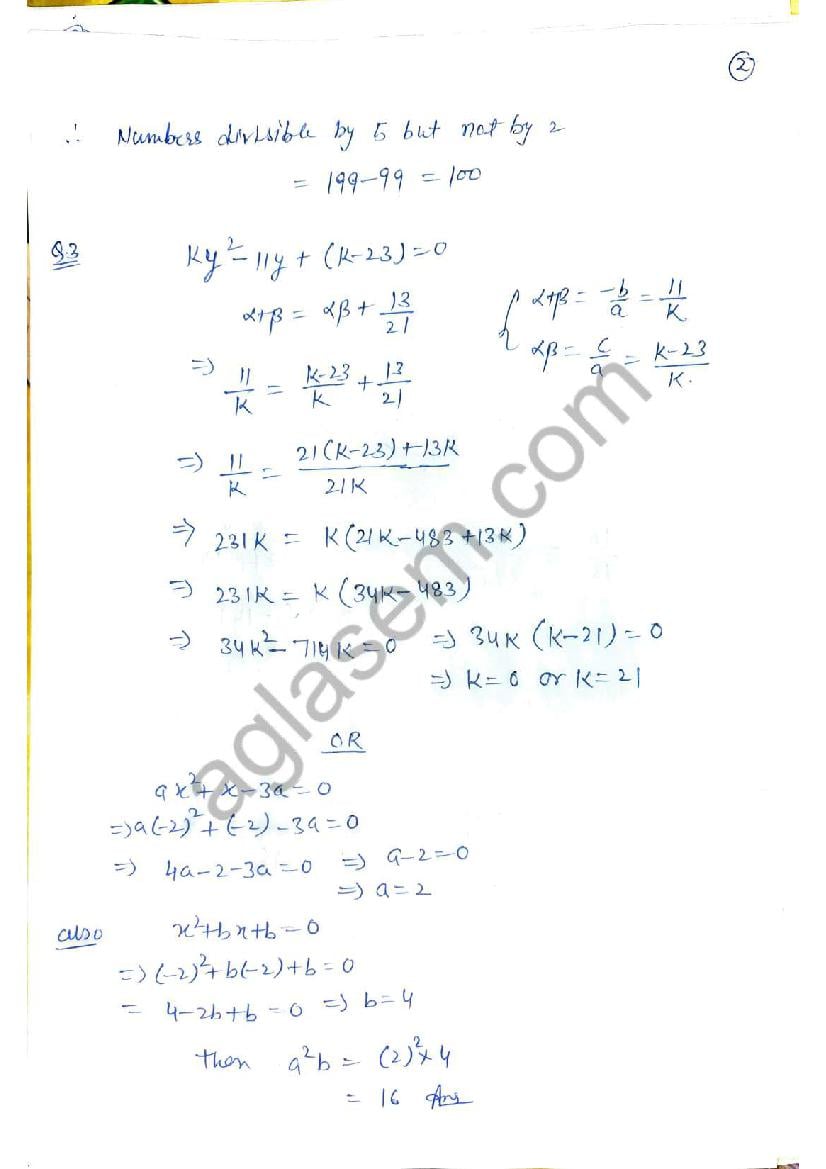 ②
∴ Numbers divisible by 5 but not by 2
= 199-99 = 100
Q.3 Ky² - 11y + (K-23) = 0
α+β = αβ + 13/21 { α+β = -b/a = 11/K
⇒ 11/K = K-23/K + 13/21 αβ = c/a = K-23/K.
⇒ 11/K = 21(K-23)+13K/21K
⇒ 231K = K(21K-483+13K)
⇒ 231K = K(34K-483)
⇒ 34K² - 714K = 0 ⇒ 34K (K-21) = 0
⇒ K=0 or K=21
OR
ax² + x - 3a = 0
⇒ a(-2)² + (-2) - 3a = 0
⇒ 4a-2-3a=0 ⇒ a-2=0
⇒ a=2
also x²+bx+b=0
⇒ (-2)²+b(-2)+b=0
= 4-2b+b=0 ⇒ b=4
then a²b = (2)²×4
= 16 Ans
aglasem.com